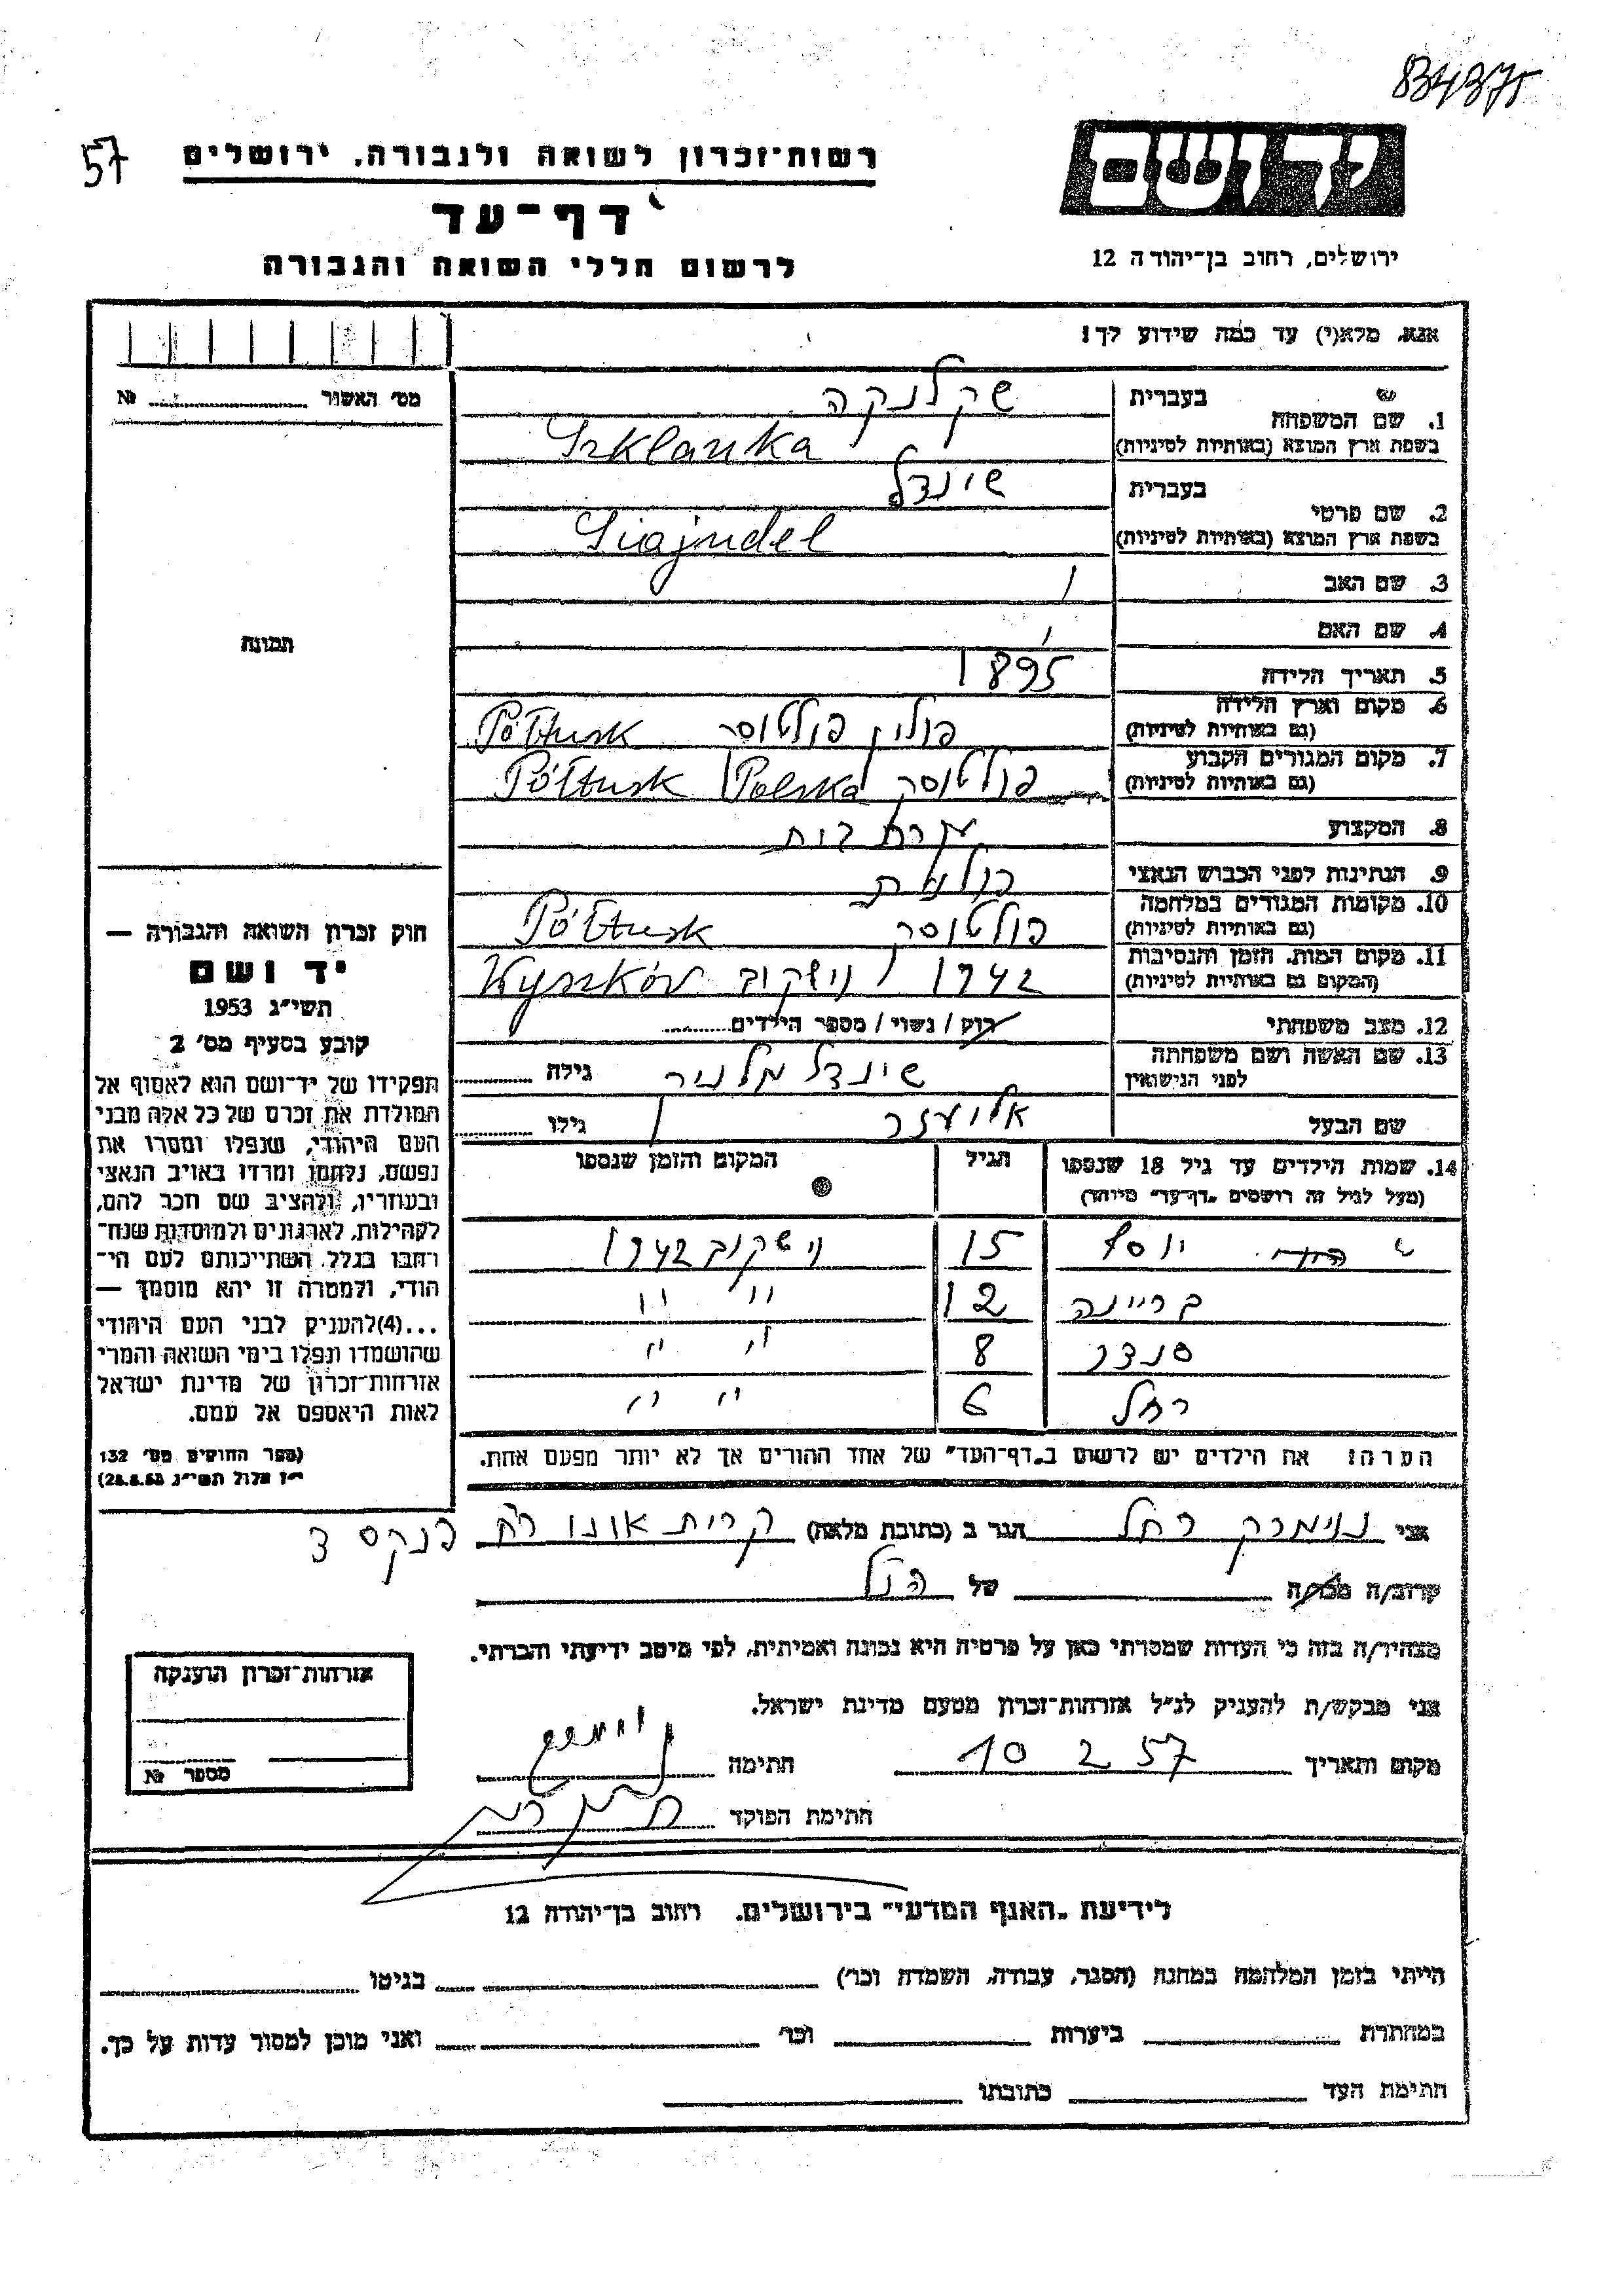 834375
57
רשות־זכרון לשואה ולגבורה, ירושלים
יד ושם
דף־עד
ירושלים, רחוב בן־יהודה 12
לרשום חללי השואה והגבורה
אנא, מלא(י) עד כמה שידוע לך!
מס׳ האשור № 
1. שם המשפחה
בעברית שקלנקה
בשפת ארץ המוצא (באותיות לטיניות) Szklanka
2. שם פרטי
בעברית שינדל
בשפת ארץ המוצא (באותיות לטיניות) Siajndel
3. שם האב /
4. שם האם /
5. תאריך הלידה 1895
6. מקום וארץ הלידה
(גם באותיות לטיניות) פולין פולטוסק Półtusk
7. מקום המגורים הקבוע
(גם באותיות לטיניות) פולטוסק Polska Półtusk
8. המקצוע עקרת בית
9. הנתינות לפני הכבוש הנאצי פולנית
10. מקומות המגורים במלחמה
(גם באותיות לטיניות) פולטוסק Półtusk
11. מקום המות, הזמן והנסיבות
(המקום גם באותיות לטיניות) 1942 וישקוב Wyszków
12. מצב משפחתי רוק / נשוי / מספר הילדים
13. שם האשה ושם משפחתה
לפני הנישואין שינדל מלניר גילה
שם הבעל אליעזר גילו
14. שמות הילדים עד גיל 18 שנספו הגיל המקום והזמן שנספו
(מעל לגיל זה רושמים "דף־עד" מיוחד)
יוסף 15 וישקוב 1942
בריינה 12 " "
סנדר 8 " "
רחל 6 " "
הערה: את הילדים יש לרשום ב"דף־העד" של אחד ההורים אך לא יותר מפעם אחת.
תמונה
חוק זכרון השואה והגבורה —
יד ושם
תשי״ג 1953
קובע בסעיף מס׳ 2
תפקידו של יד־ושם הוא לאסוף אל
המולדת את זכרם של כל אלה מבני
העם היהודי, שנפלו ומסרו את
נפשם, נלחמו ומרדו באויב הנאצי
ובעוזריו, ולהציב שם וזכר להם,
לקהילות, לארגונים ולמוסדות שנח־
רבו בגלל השתייכותם לעם הי־
הודי, ולמטרה זו יהא מוסמך —
...(4) להעניק לבני העם היהודי
שהושמדו ונפלו בימי השואה והמרי
אזרחות־זכרון של מדינת ישראל
לאות היאספם אל עמם.
(ספר החוקים מס׳ 132
י״ז אלול תשי״ג 28.8.53)
אני נוימרק רחל הגר ב (כתובת מלאה) קרית אונו רח פנקס 3
קרוב/ה מכר/ה של הנ״ל
מצהיר/ה בזה כי העדות שמסרתי כאן על פרטיה היא נכונה ואמיתית, לפי מיטב ידיעתי והכרתי.
אני מבקש/ת להעניק לנ״ל אזרחות־זכרון מטעם מדינת ישראל.
מקום ותאריך 10 2 57 חתימה
חתימת הפוקד
אזרחות־זכרון הוענקה
מספר №
לידיעת "האגף המדעי" בירושלים, רחוב בן־יהודה 12
הייתי בזמן המלחמה במחנה (הסגר, עבודה, השמדה וכו׳) בגיטו
במחתרת ביערות וכו׳ ואני מוכן למסור עדות על כך.
חתימת העד כתובתו